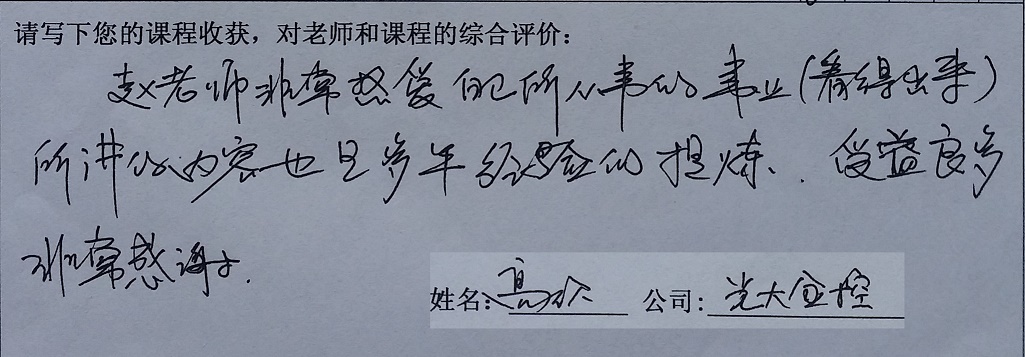 请写下您的课程收获，对老师和课程的综合评价：
赵老师非常热爱自己所从事的事业（看得出来）
所讲的内容也是多年经验的提炼、受益良多
非常感谢.
姓名：高 公司：光大金控